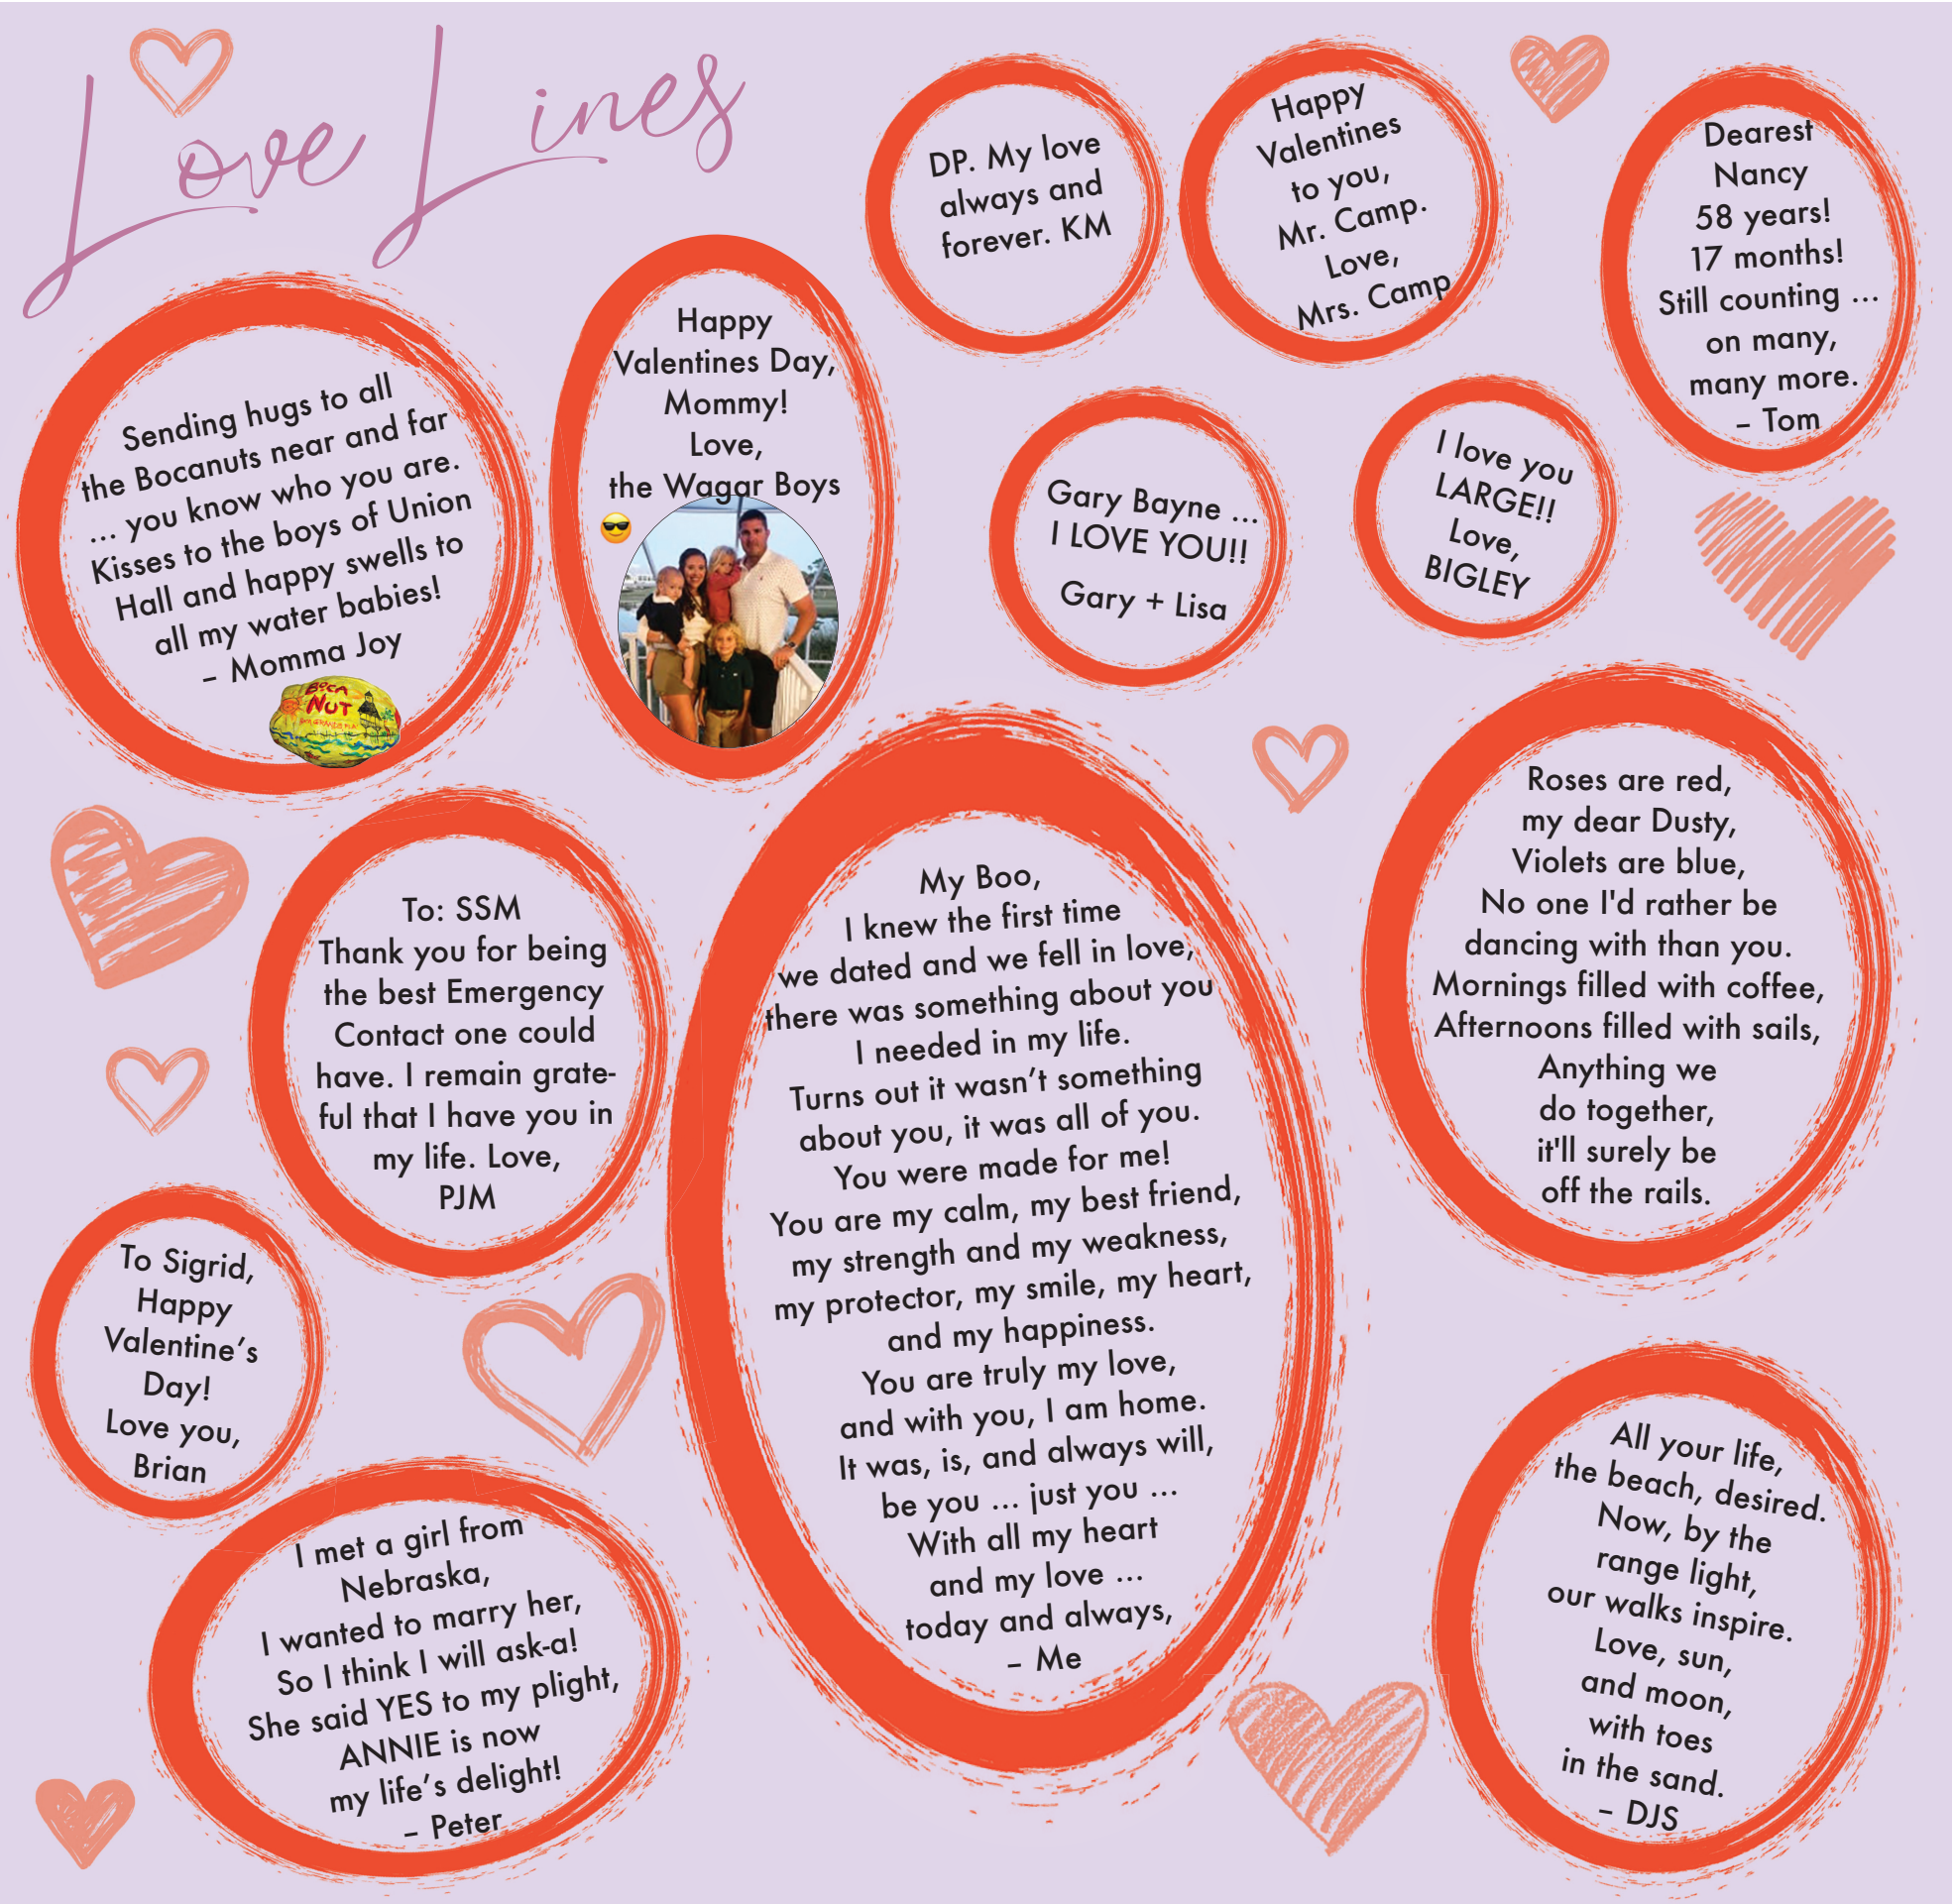 Love Lines
DP. My love
always and
forever. KM
Happy
Valentines
to you,
Mr. Camp.
Love,
Mrs. Camp
Dearest
Nancy
58 years!
17 months!
Still counting ...
on many,
many more.
– Tom
Sending hugs to all
the Bocanuts near and far
... you know who you are.
Kisses to the boys of Union
Hall and happy swells to
all my water babies!
– Momma Joy
BOCA
NUT
Happy
Valentines Day,
Mommy!
Love,
the Wagar Boys
Gary Bayne ...
I LOVE YOU!!
Gary + Lisa
I love you
LARGE!!
Love,
BIGLEY
To: SSM
Thank you for being
the best Emergency
Contact one could
have. I remain grate-
ful that I have you in
my life. Love,
PJM
My Boo,
I knew the first time
we dated and we fell in love,
there was something about you
I needed in my life.
Turns out it wasn’t something
about you, it was all of you.
You were made for me!
You are my calm, my best friend,
my strength and my weakness,
my protector, my smile, my heart,
and my happiness.
You are truly my love,
and with you, I am home.
It was, is, and always will,
be you ... just you ...
With all my heart
and my love ...
today and always,
– Me
Roses are red,
my dear Dusty,
Violets are blue,
No one I'd rather be
dancing with than you.
Mornings filled with coffee,
Afternoons filled with sails,
Anything we
do together,
it'll surely be
off the rails.
To Sigrid,
Happy
Valentine’s
Day!
Love you,
Brian
I met a girl from
Nebraska,
I wanted to marry her,
So I think I will ask-a!
She said YES to my plight,
ANNIE is now
my life’s delight!
– Peter
All your life,
the beach, desired.
Now, by the
range light,
our walks inspire.
Love, sun,
and moon,
with toes
in the sand.
– DJS